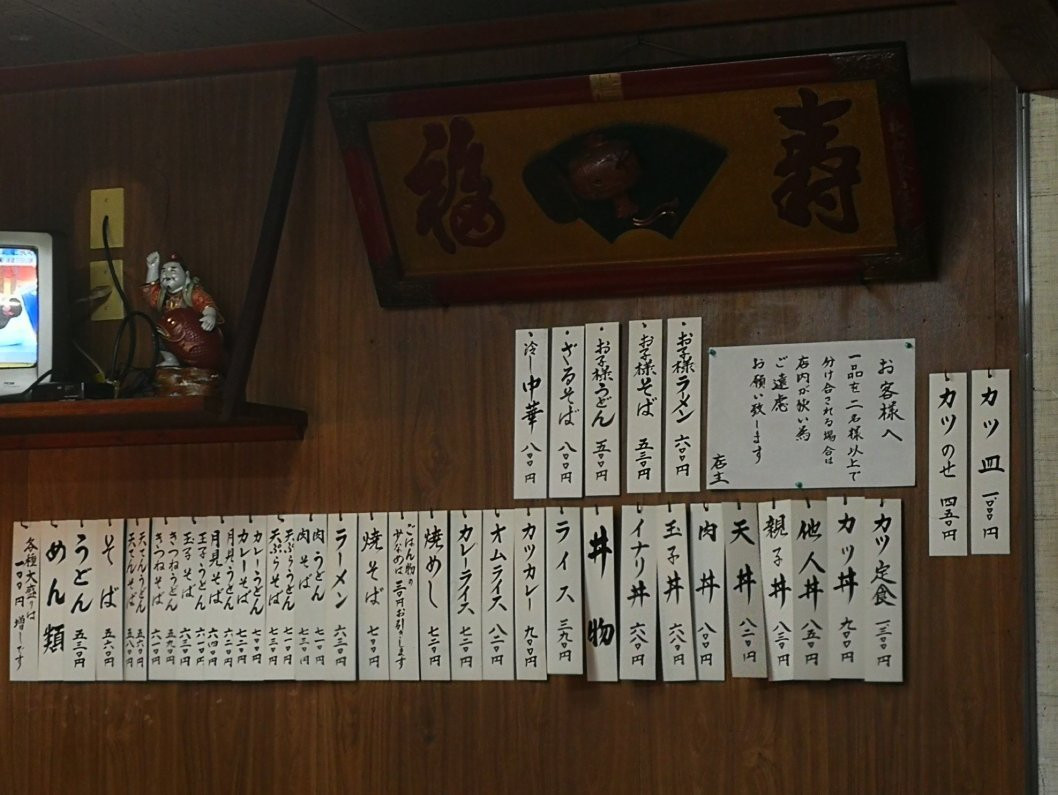 福
寿
お子様ラーメン 六〇〇円
お子様そば 五三〇円
お子様うどん 五〇〇円
ざるそば 八〇〇円
冷し中華 八〇〇円
お客様へ
一品を二名様以上で
分け合される場合は
店内が狭い為
ご遠慮
お願い致します
店主
カツ皿
カツのせ 四五〇円
カツ定食 一三〇〇円
カツ丼 九〇〇円
他人丼 八五〇円
親子丼 八三〇円
天丼 八二〇円
肉丼 八〇〇円
玉子丼 六八〇円
イナリ丼 六八〇円
丼物
ライス 三九〇円
カツカレー 九〇〇円
オムライス 八二〇円
カレーライス 七三〇円
焼めし 七三〇円
ごはん物の
少なめは 三〇円お引きします
焼そば 七〇〇円
ラーメン 六三〇円
肉うどん 七一〇円
肉そば 七三〇円
天ぷらうどん 七一〇円
天ぷらそば 七三〇円
カレーうどん 七〇〇円
カレーそば
月見うどん
月見そば 六四〇円
玉子うどん
玉子そば 六三〇円
きつねうどん
きつねそば
天てんうどん
天てんそば
そば 五六〇円
うどん 五三〇円
めん類
各種大盛りは
一〇〇円増しです